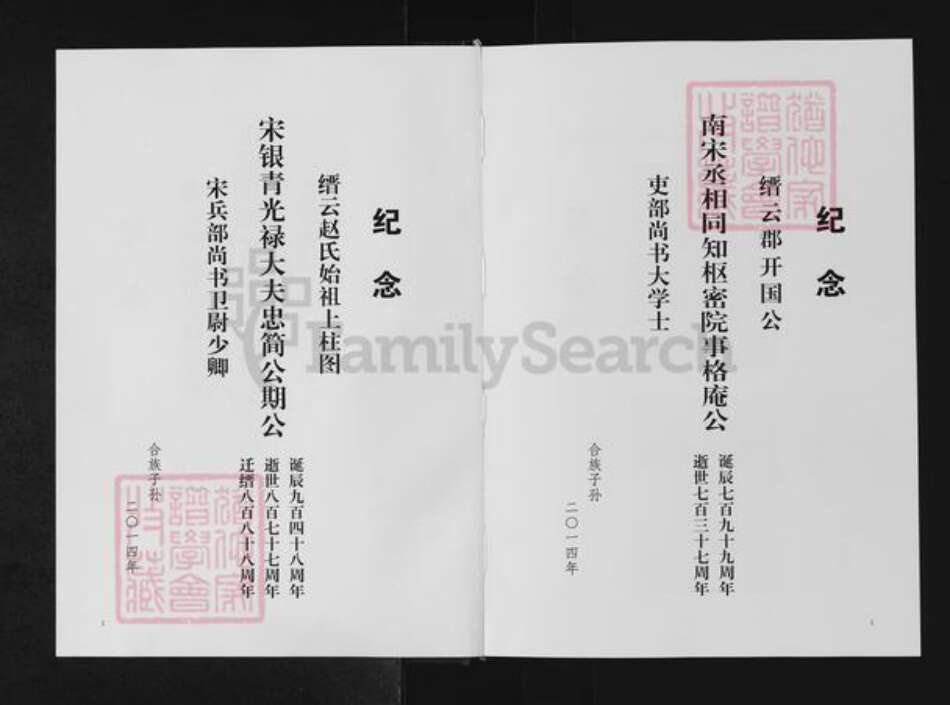 纪念
缙云郡开国公
南宋丞相同知枢密院事格庵公
吏部尚书大学士
诞辰七百九十九周年
逝世七百三十七周年
合族子孙
二〇一四年
1
纪念
缙云赵氏始祖上柱图
宋银青光禄大夫忠简公期公
宋兵部尚书卫尉少卿
诞辰九百四十八周年
逝世八百七十七周年
迁缙八百八十八周年
合族子孙
二〇一四年
FamilySearch